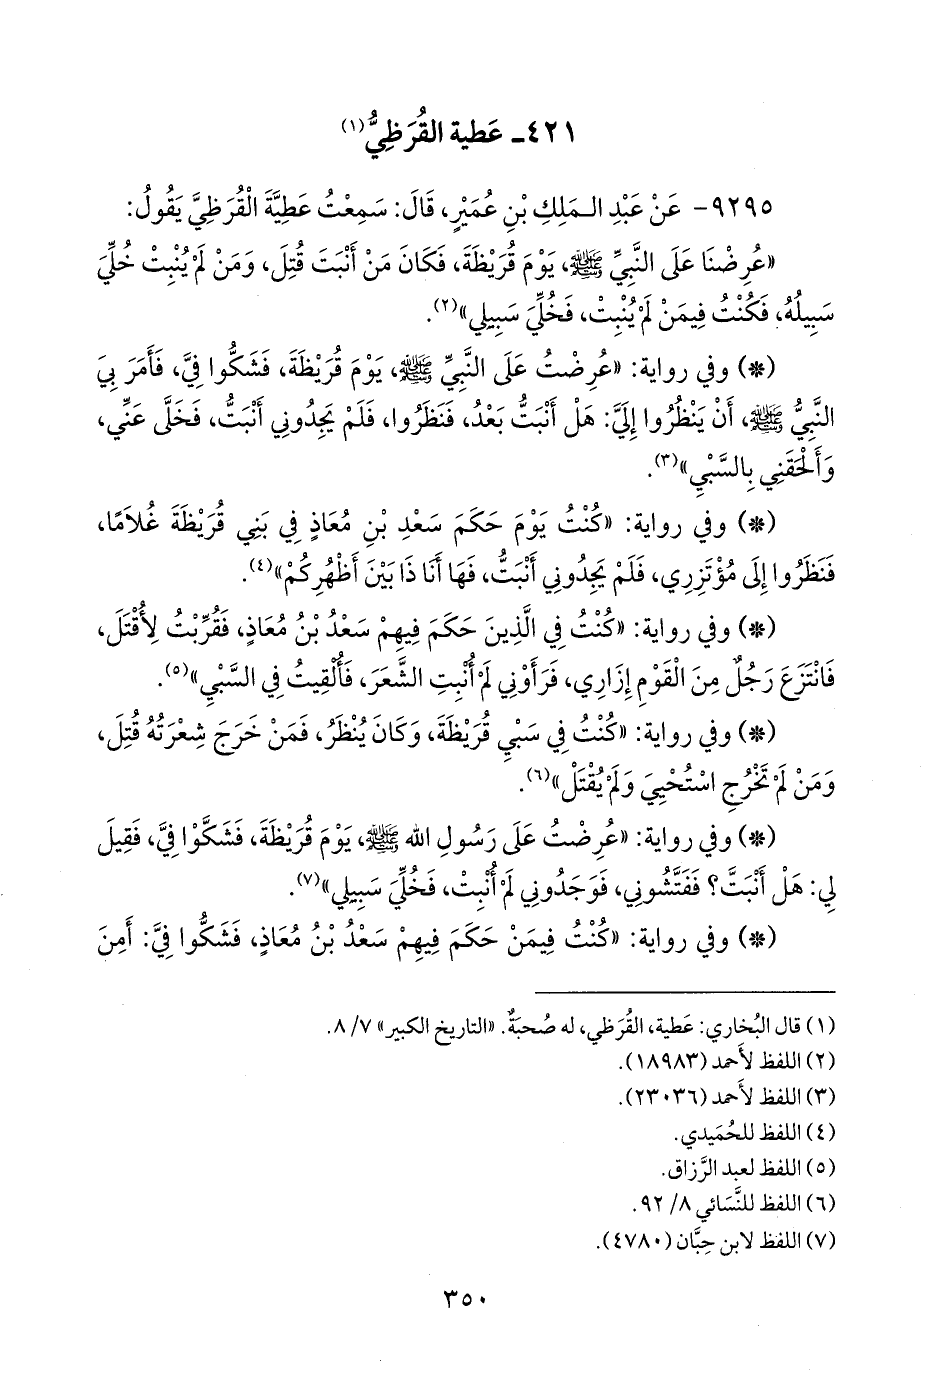 ٤٢١ـ عَطية القُرَظِيُّ(١)
٩٢٩٥- عَنْ عَبْدِ الـمَلِكِ بْنِ عُمَيْرٍ، قَالَ: سَمِعْتُ عَطِيَّةَ الْقُرَظِيَّ يَقُولُ:
«عُرِضْنَا عَلَى النَّبِيِّ ﷺ، يَوْمَ قُرَيْظَةَ، فَكَانَ مَنْ أَنْبَتَ قُتِلَ، وَمَنْ لَمْ يُنْبِتْ خُلِّيَ
سَبِيلُهُ، فَكُنْتُ فِيمَنْ لَمْ يُنْبِتْ، فَخُلِّيَ سَبِيلِي»(٢).
(*) وفي رواية: «عُرِضْتُ عَلَى النَّبِيِّ ﷺ، يَوْمَ قُرَيْظَةَ، فَشَكُّوا فِيَّ، فَأَمَرَ بِيَ
النَّبِيُّ ﷺ، أَنْ يَنْظُرُوا إِلَيَّ: هَلْ أَنْبَتُّ بَعْدُ، فَنَظَرُوا، فَلَمْ يَجِدُونِي أَنْبَتُّ، فَخَلَّى عَنِّي،
وَأَلْحَقَنِي بِالسَّبْيِ»(٣).
(*) وفي رواية: «كُنْتُ يَوْمَ حَكَمَ سَعْدِ بْنِ مُعَاذٍ فِي بَنِي قُرَيْظَةَ غُلَامًا،
فَنَظَرُوا إِلَى مُؤْتَزِرِي، فَلَمْ يَجِدُونِي أَنْبَتُّ، فَهَا أَنَا ذَا بَيْنَ أَظْهُرِكُمْ»(٤).
(*) وفي رواية: «كُنْتُ فِي الَّذِينَ حَكَمَ فِيهِمْ سَعْدُ بْنُ مُعَاذٍ، فَقُرِّبْتُ لِأُقْتَلَ،
فَانْتَزَعَ رَجُلٌ مِنَ الْقَوْمِ إِزَارِي، فَرَأَوْنِي لَمْ أُنْبِتِ الشَّعَرَ، فَأُلْقِيتُ فِي السَّبْيِ»(٥).
(*) وفي رواية: «كُنْتُ فِي سَبْيِ قُرَيْظَةَ، وَكَانَ يُنْظَرُ، فَمَنْ خَرَجَ شِعْرَتُهُ قُتِلَ،
وَمَنْ لَمْ تَخْرُجِ اسْتُحْيِيَ وَلَمْ يُقْتَلْ»(٦).
(*) وفي رواية: «عُرِضْتُ عَلَى رَسُولِ الله ﷺ، يَوْمَ قُرَيْظَةَ، فَشَكَّوْا فِيَّ، فَقِيلَ
لِي: هَلْ أَنْبَتَّ؟ فَفَتَّشُونِي، فَوَجَدُونِي لَمْ أُنْبِتْ، فَخُلِّيَ سَبِيلِي»(٧).
(*) وفي رواية: «كُنْتُ فِيمَنْ حَكَمَ فِيهِمْ سَعْدُ بْنُ مُعَاذٍ، فَشَكُّوا فِيَّ: أَمِنَ
(١) قال البُخاري: عَطية، القُرَظي، له صُحبَةٌ. «التاريخ الكبير» ٧/ ٨.
(٢) اللفظ لأحمد (١٨٩٨٣).
(٣) اللفظ لأحمد (٢٣٠٣٦).
(٤) اللفظ للحُمَيدي.
(٥) اللفظ لعبد الرَّزاق.
(٦) اللفظ للنَّسَائي ٨/ ٩٢.
(٧) اللفظ لابن حِبَّان (٤٧٨٠).
٣٥٠